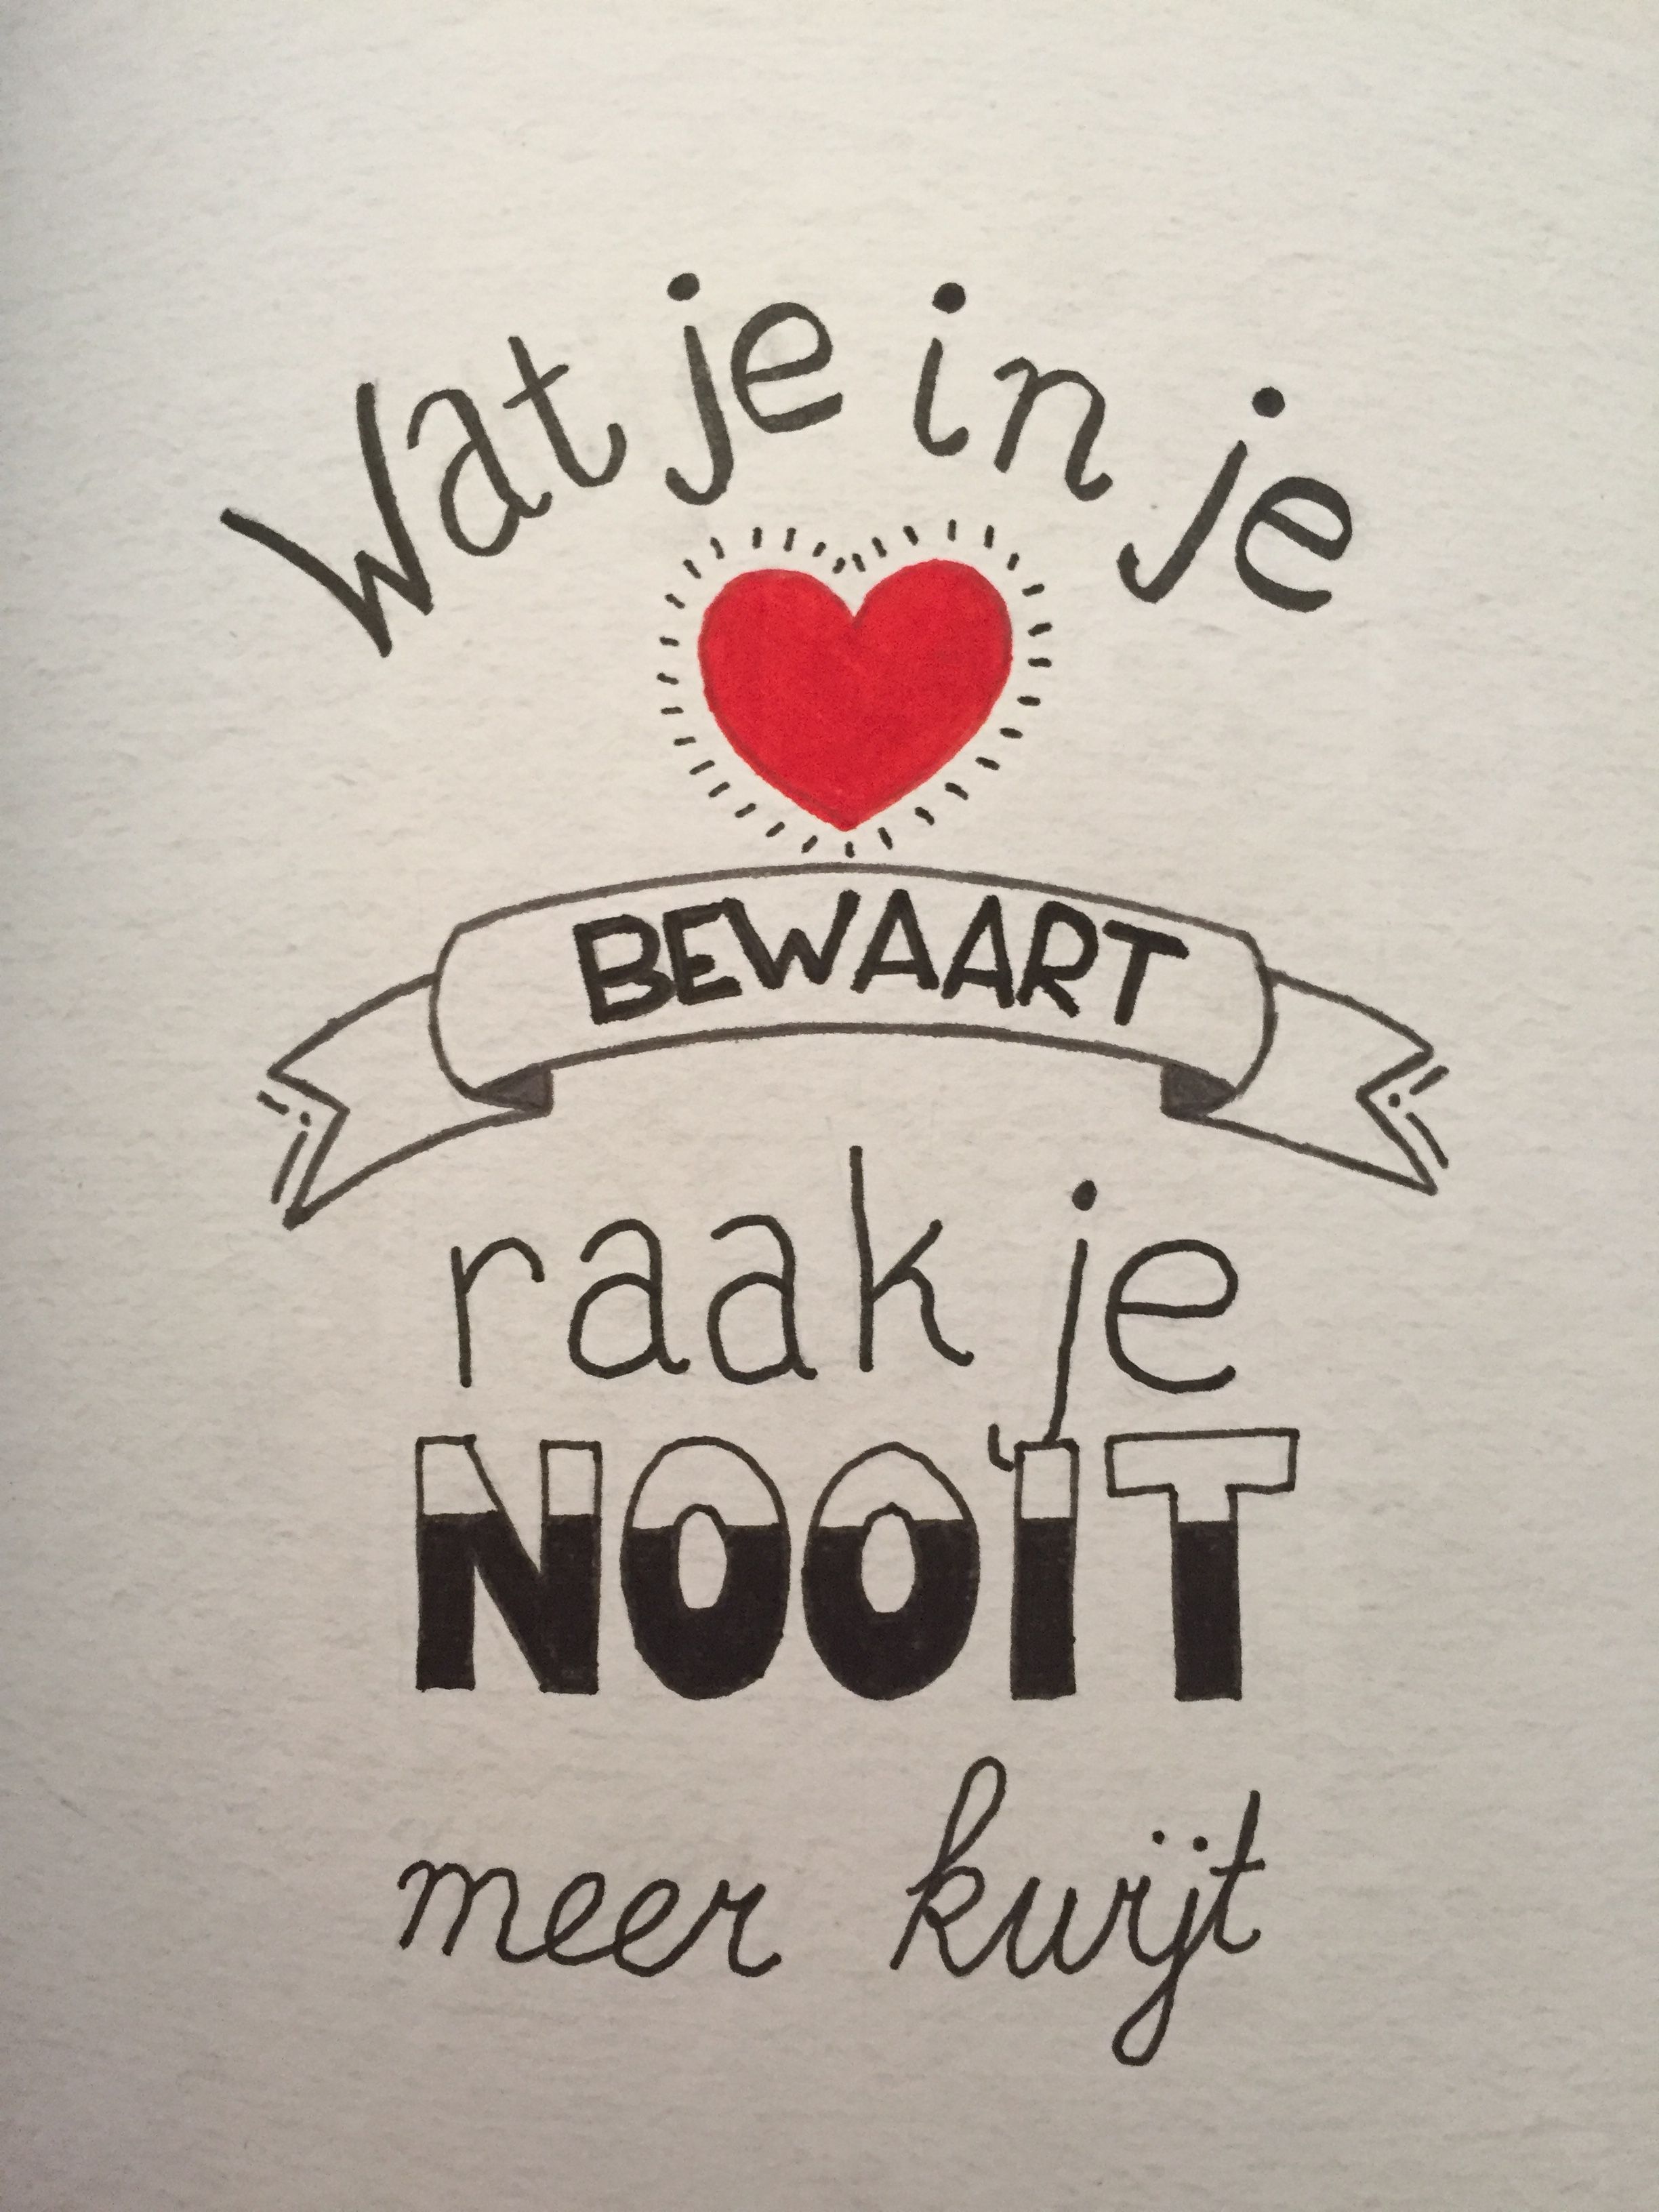 Wat je in je
BEWAART
raak je
NOOIT
meer kwijt